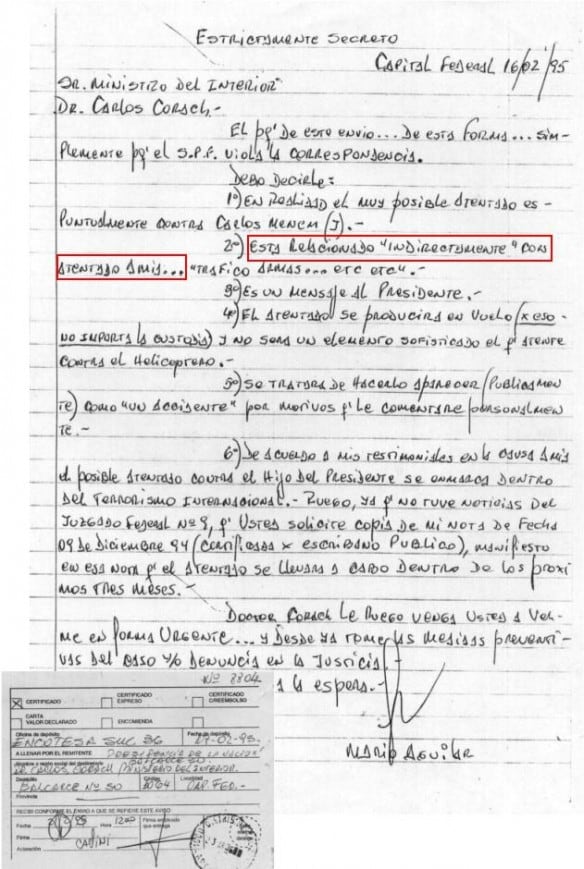 ESTRICTAMENTE SECRETO
CAPITAL FEDERAL 16/02/95
SR. MINISTRO DEL INTERIOR
DR. CARLOS CORACH.-
EL pq' DE ESTE ENVIO... DE ESTA FORMA... SIM-
PLEMENTE pq' EL S.P.F. VIOLA LA CORRESPONDENCIA.
DEBO DECIRLE:
1º) EN REALIDAD EL MUY POSIBLE ATENTADO ES -
PUNTUALMENTE CONTRA CARLOS MENEM (J).-
2º) ESTA RELACIONADO "INDIRECTAMENTE" CON
ATENTADO AMIA... "TRAFICO ARMAS... ETC ETC".-
3º) ES UN MENSAJE AL PRESIDENTE.-
4º) EL ATENTADO SE PRODUCIRA EN VUELO (x ESO-
NO IMPORTA LA CUSTODIA) Y NO SERA UN ELEMENTO SOFISTICADO EL q' ATENTE
CONTRA EL HELICOPTERO.-
5º) SE TRATARA DE HACERLO APARECER (PUBLICAMEN
TE) COMO "UN ACCIDENTE" POR MOTIVOS q' LE COMENTARE PERSONALMEN
TE.-
6º) DE ACUERDO A MIS TESTIMONIALES EN LA CAUSA AMIA
EL POSIBLE ATENTADO CONTRA EL HIJO DEL PRESIDENTE SE ENMARCA DENTRO
DEL TERRORISMO INTERNACIONAL.- RUEGO, YA q' NO TUVE NOTICIAS DEL
JUZGADO FEDERAL Nº 9, q' USTED SOLICITE COPIA DE MI NOTA DE FECHA
09 DE DICIEMBRE 94 (CERTIFICADA x ESCRIBANO PUBLICO), MANIFIESTO
EN ESA NOTA q' EL ATENTADO SE LLEVARA A CABO DENTRO DE LOS PROXI
MOS TRES MESES.-
DOCTOR CORACH LE RUEGO VENGA USTED A VER-
ME EN FORMA URGENTE... Y DESDE YA TOME LAS MEDIDAS PREVENTI-
VAS DEL CASO Y/O DENUNCIA EN LA JUSTICIA.
A LA ESPERA.-
MARIO AGUILAR
Nº 8804
CERTIFICADO
CERTIFICADO EXPRESO
CERTIFICADO C/REEMBOLSO
CARTA VALOR DECLARADO
ENCOMIENDA
Oficina de depósito
Fecha de depósito
ENCOTESA SUC. 36
A LLENAR POR EL REMITENTE
DR CARLOS CORACH (MINISTERIO DEL INTERIOR.
Domicilio
Código
Localidad
BALCARCE Nº 50
1064
CAP. FED.-
Provincia
RECIBI CONFORME EL ENVIO A QUE SE REFIERE ESTE AVISO
Fecha
Hora
1200
Firma
Aclaración
CASINI